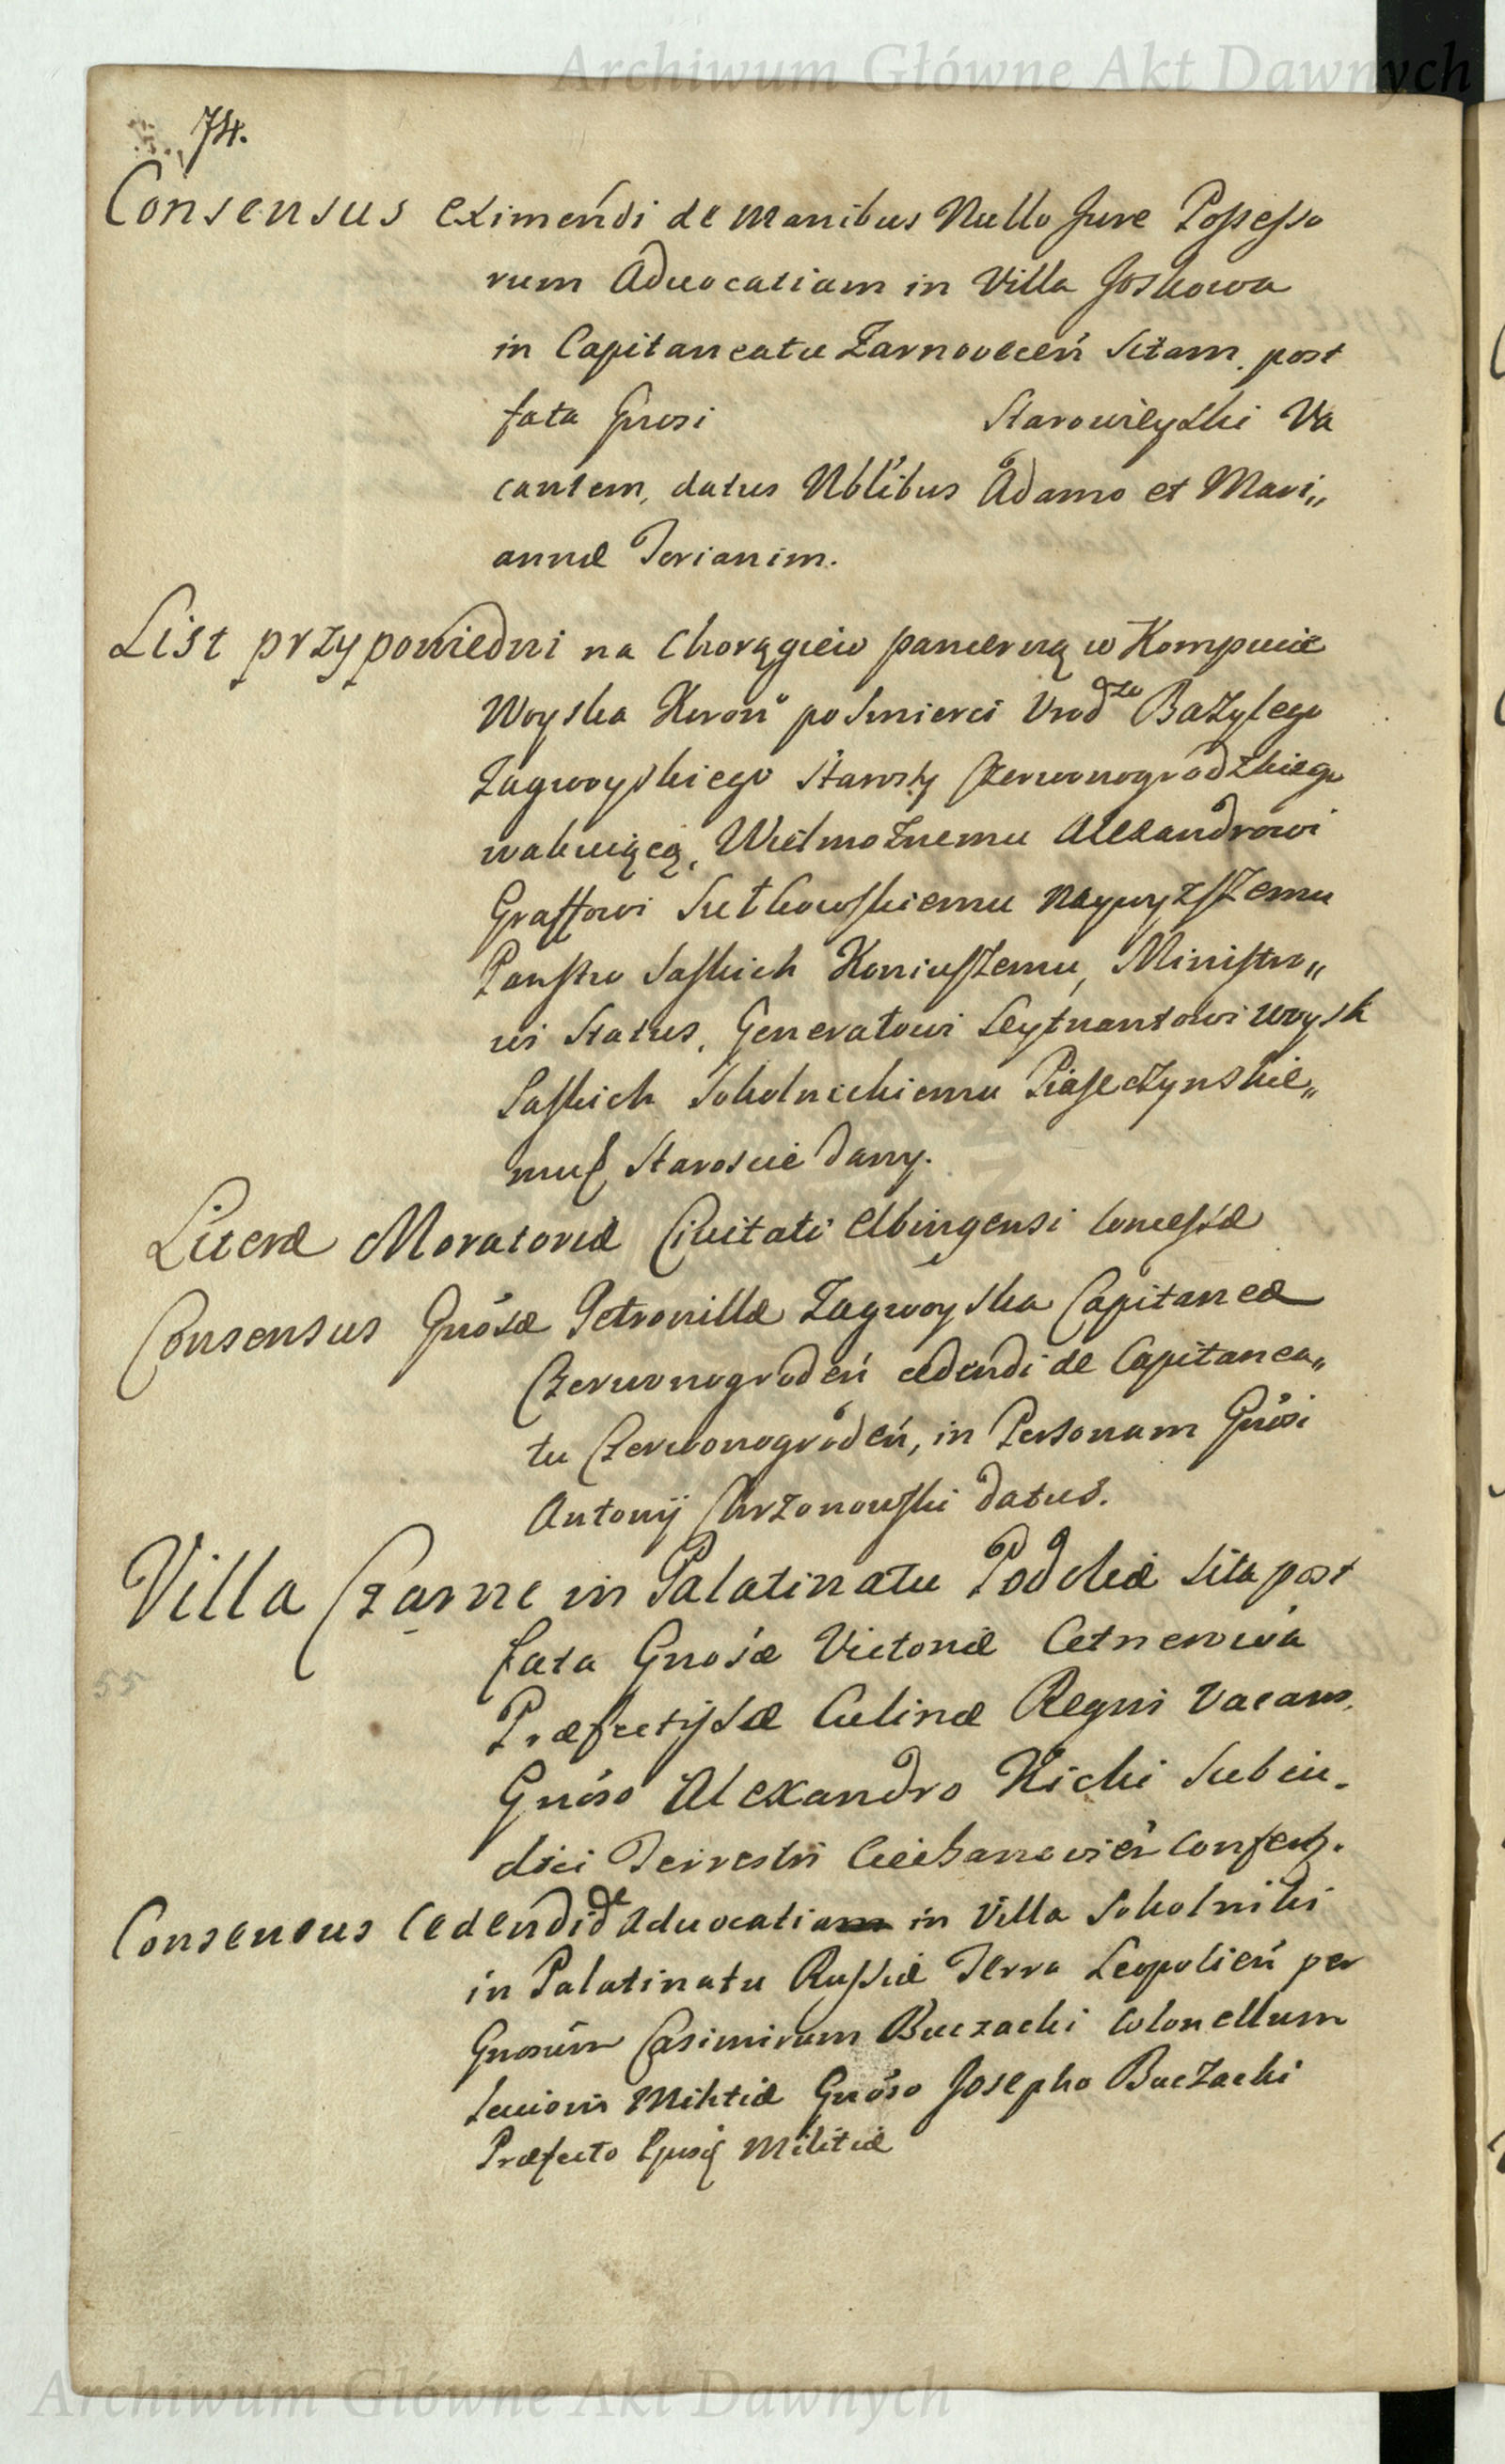 Archiwum Główne Akt Dawnych
74.
Consensus eximendi de manibus Nullo Jure Possesso
rum Aduocatiam in Villa Joskowa
in Capitaneatu Zarnoveceń Sitam post
fata Gnosi Starowieyski Va
cantem, datus Nblibus Adamo et Mari„
annæ Terianim.
List przypowiedni na Chorągiew pancerną w Kompucie
Woyska Koroń po Smierci Urodzo Bazylego
Zagwoyskiego Starosty Czerwonogrodzkiego
wakuiącą, Wielmożnemu Alexandrowi
Graffowi Sułkowskiemu Naywyzszemu
Panstw Saskich Koniuszemu, Ministro„
wi Status, Generałowi Leytnantowi woysk
Saskich Sokolnickiemu Piaseczynskie„
mu Staroscie dany.
Literæ Moratoriæ Civitati Elbingensi Concessæ
Consensus Gnosæ Petronillæ Zagwoyska Capitaneæ
Czerwonogrodeń cedendi de Capitanea„
tu Czerwonogrodeń, in Personam Gnosi
Antonij Chrzonowski datus.
Villa Czarne in Palatinatu Podoliæ Sita post
fata Gnosæ Victoriæ Cetnerowa
Præfectissæ Culinæ Regni Vacans,
Gnoso Alexandro Kicki Subiu„
dici Terrestri Ciechanovień Confertz.
Consensus Cedendi de Aduocatia in Villa Sokolniki
in Palatinatu Russiæ Terra Leopolień per
Gnosum Casimirum Buczacki Colonellum
Levioris Militiæ Gnoso Josepho Buczacki
Præfecto Ejusd Militiæ
55
Archiwum Główne Akt Dawnych